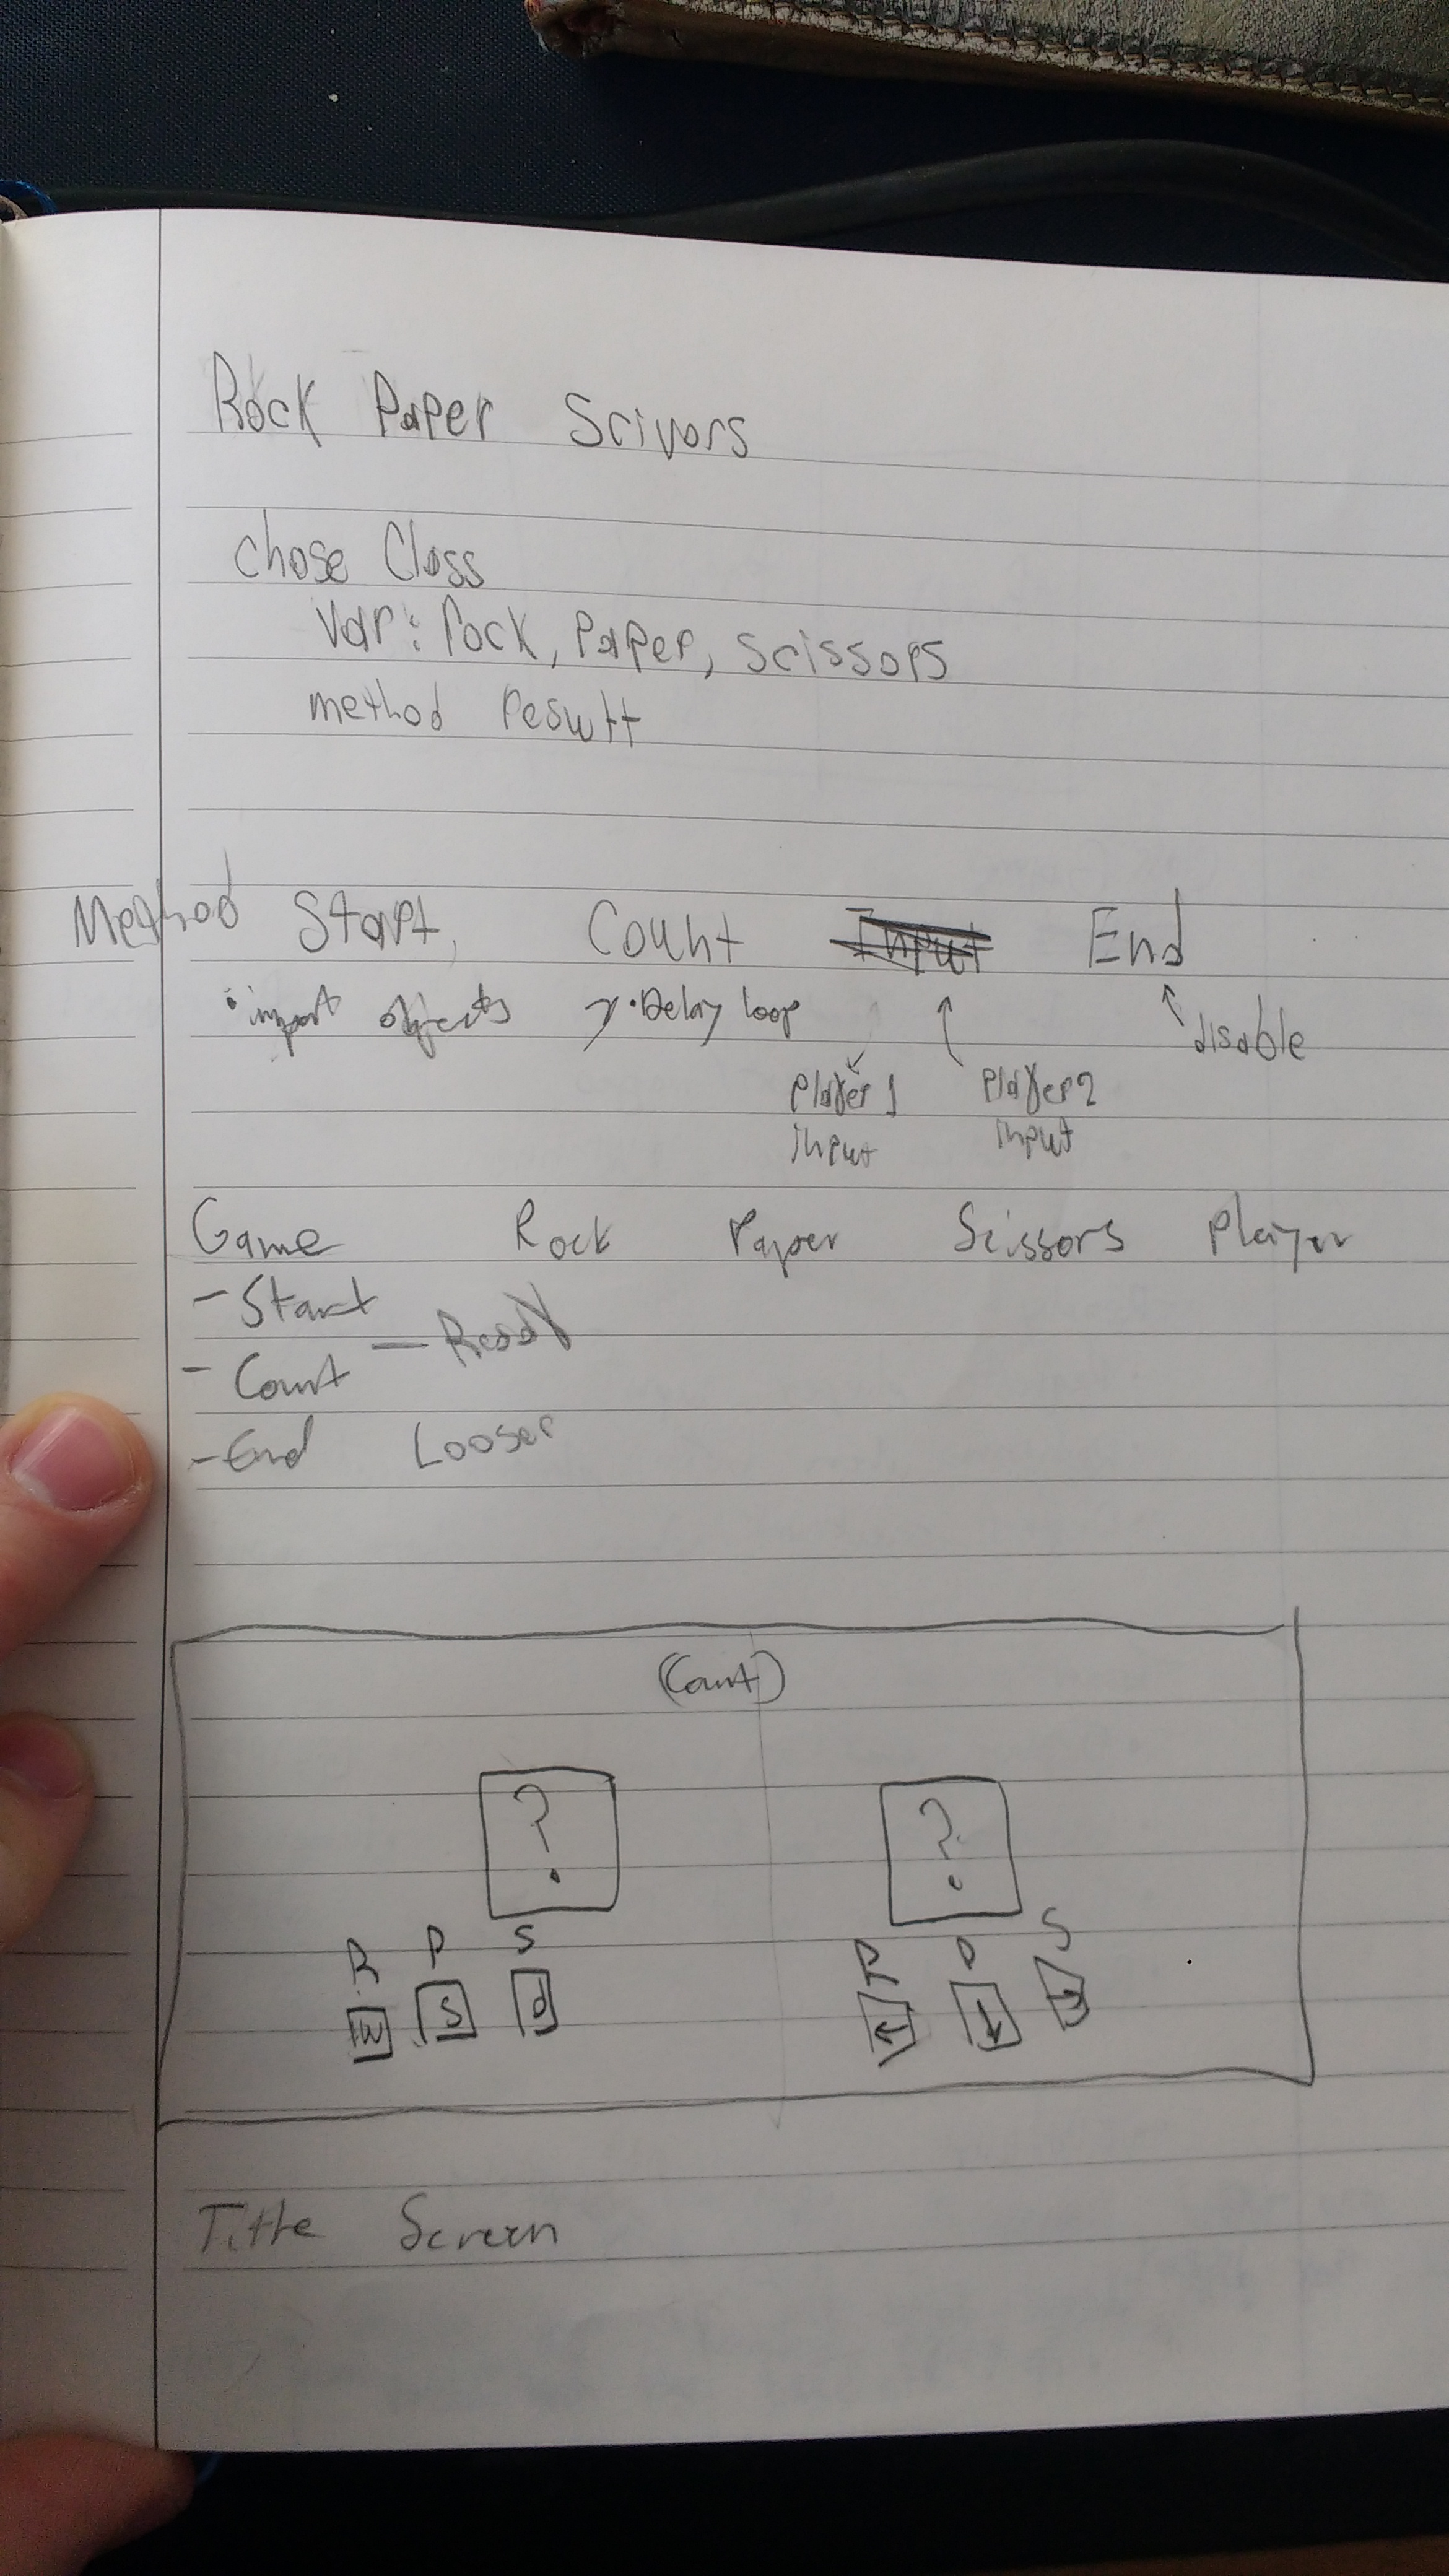 Rock Paper Scivors
chose Class
var: rock, paper, scissors
method result
Method Start, Count Input End
• import objects • Delay loop
disable
player 1 player 2
input input
Game Rock Paper Scissors Player
- Start
- Ready
- Count
- End Looser
(Count)
? ?
R P S R P S
w s d ← ↓ →
Title Screen